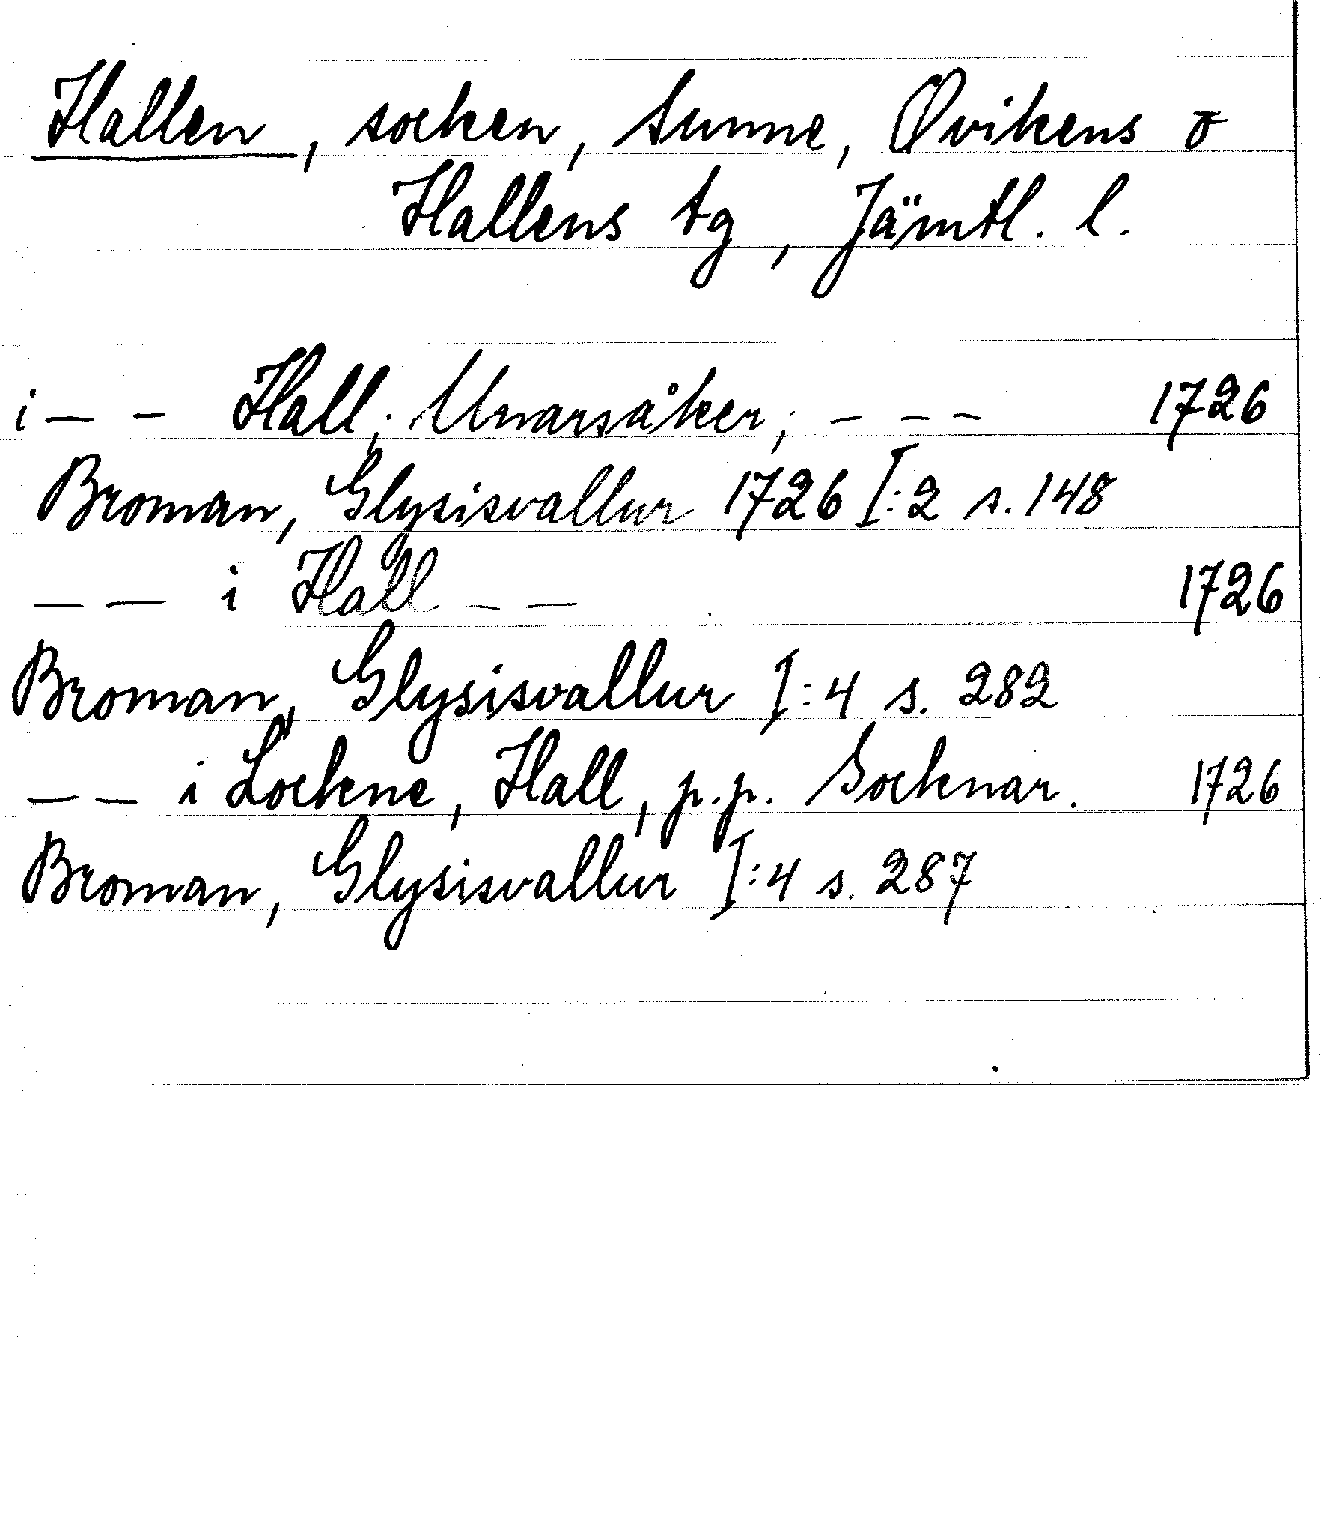 Hallen, socken, Sunne, Ovikens o
Hallens tg, Jämtl. l.
i – – Hall; Unarsåker; – – – 1726
Broman, Glysisvallur 1726 I:2 s. 148
– – i Hall – – 1726
Broman, Glysisvallur I:4 s. 282
– – i Lockne, Hall, p.p. Socknar. 1726
Broman, Glysisvallur I:4 s. 287